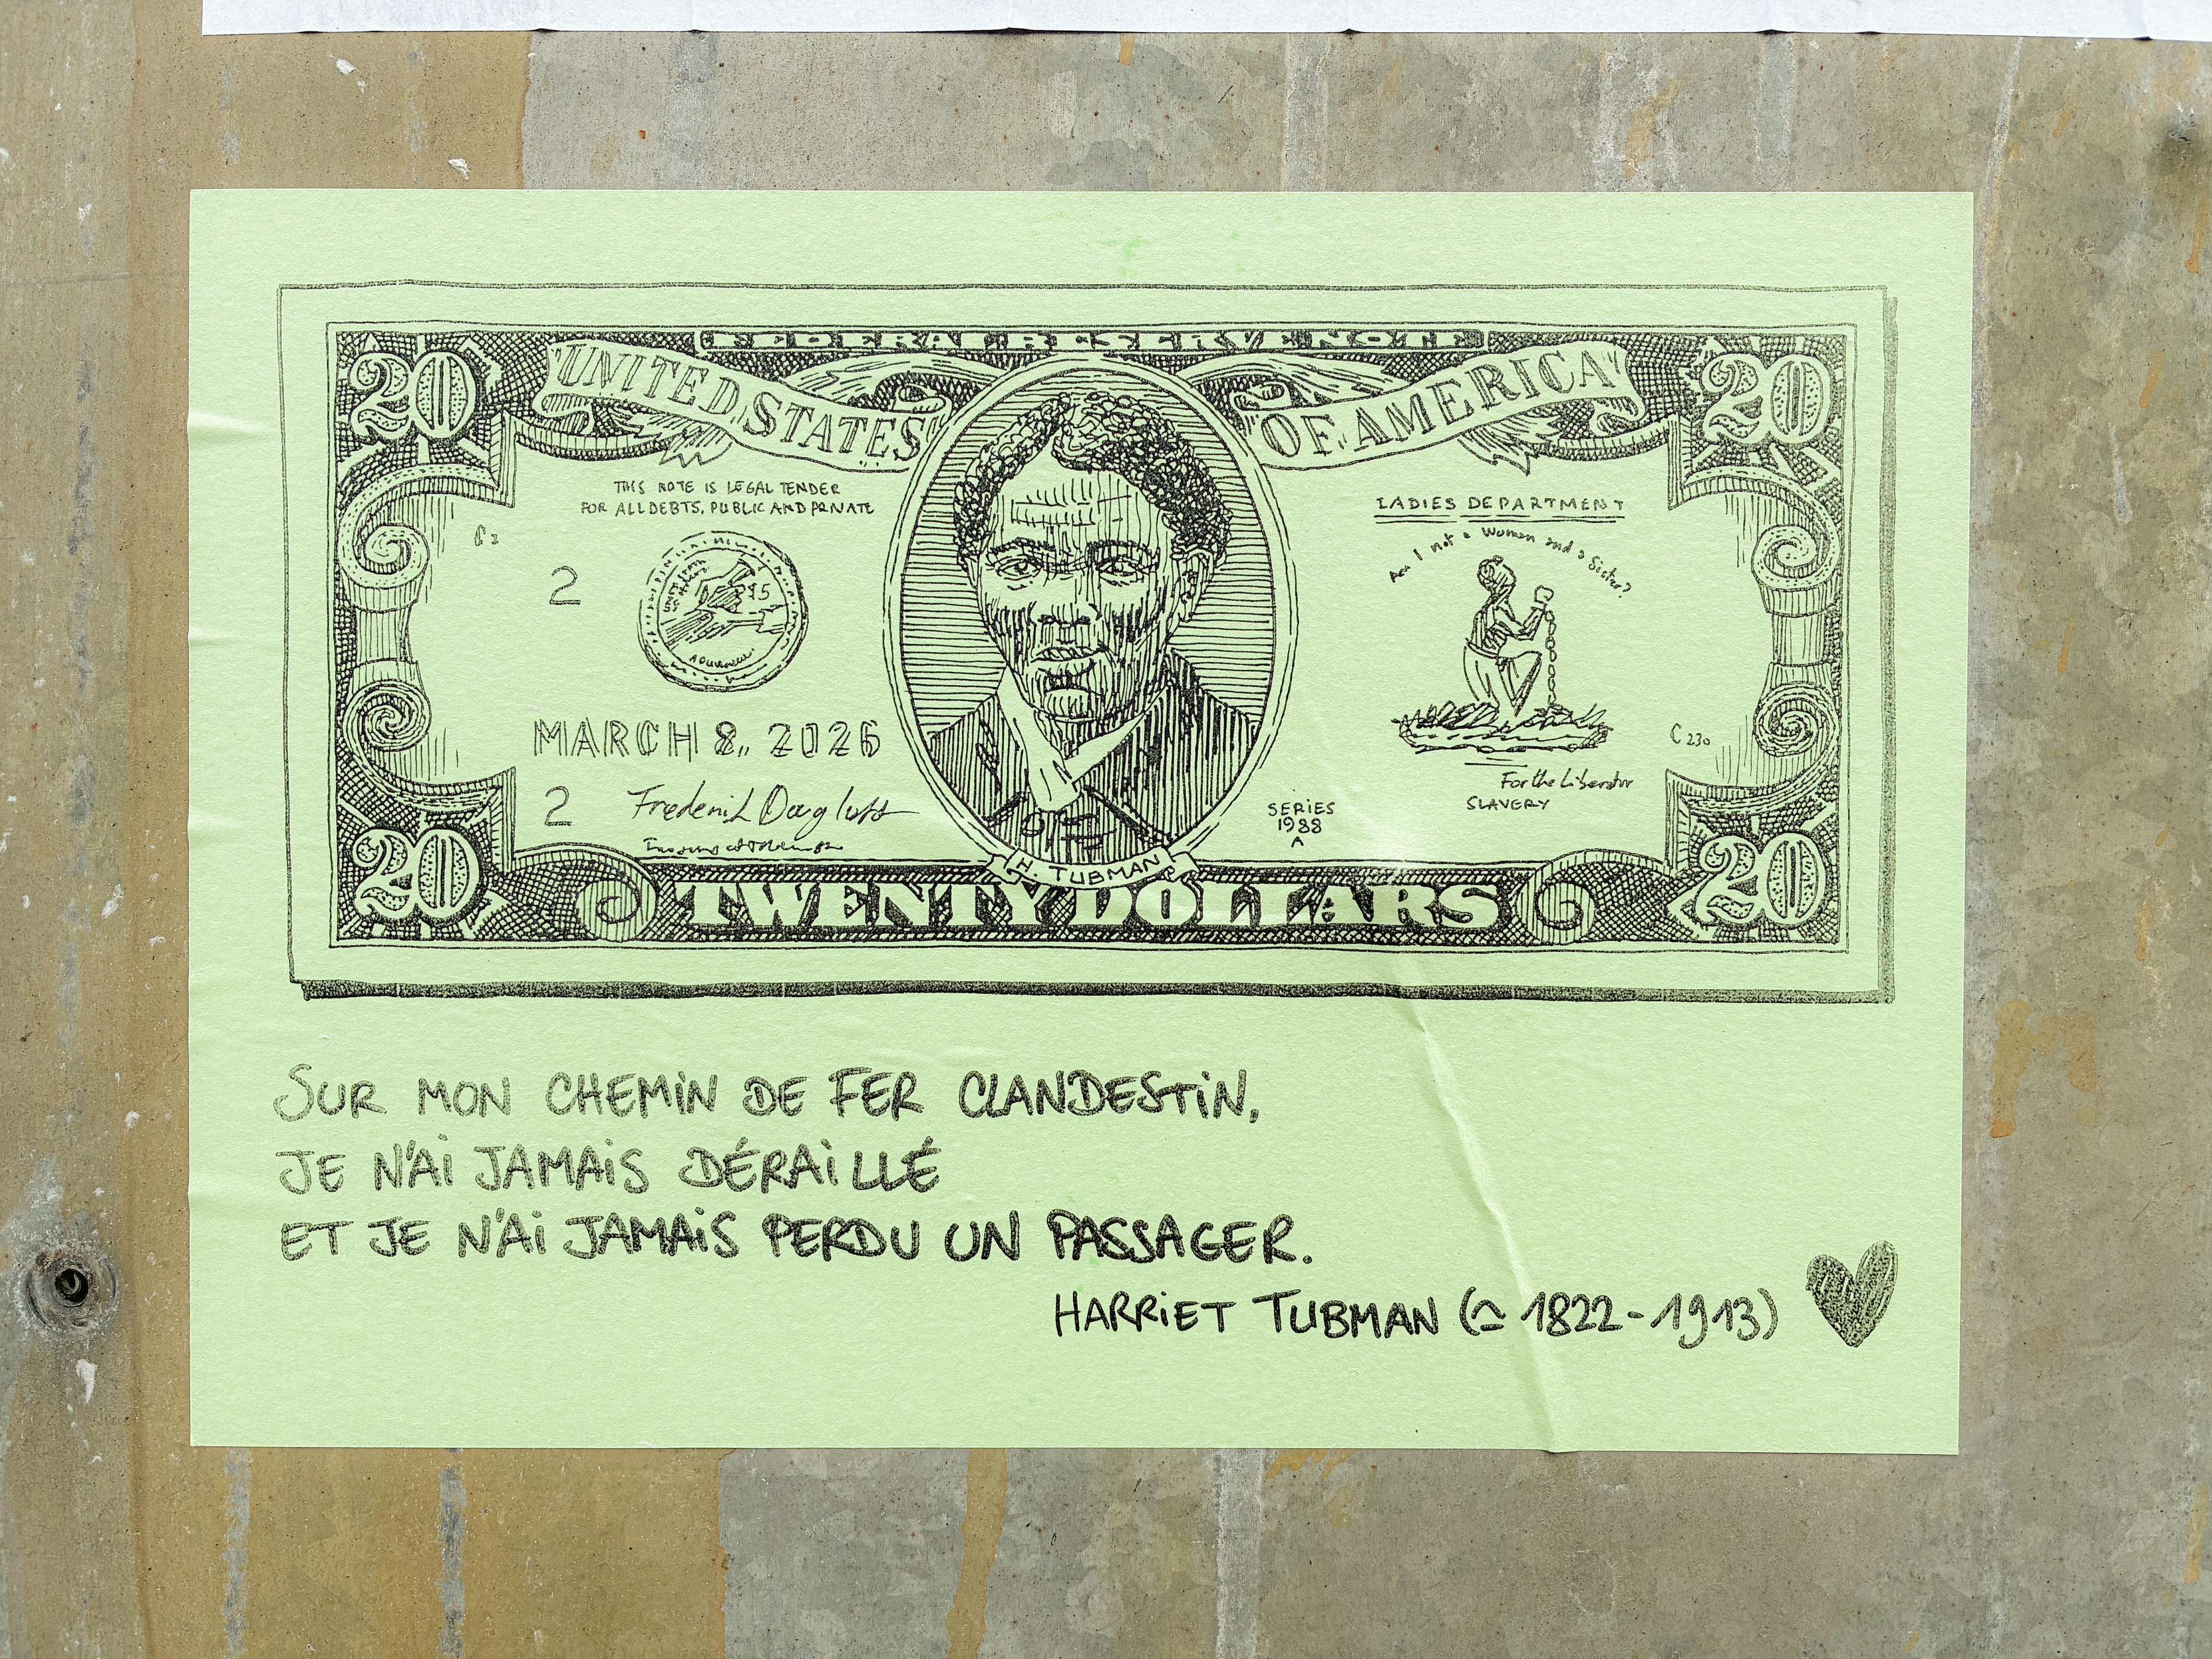 FEDERAL RESERVE NOTE
"UNITED STATES OF AMERICA"
20
20
THIS NOTE IS LEGAL TENDER
FOR ALL DEBTS, PUBLIC AND PRIVATE
C2
2
$5
MARCH 8, 2026
2
Frederick Douglass
LADIES DEPARTMENT
Am I not a Woman and a Sister?
C230
For the Liberator
SLAVERY
SERIES
1988
A
H. TUBMAN
20
TWENTY DOLLARS
20
SUR MON CHEMIN DE FER CLANDESTIN,
JE N'AI JAMAIS DÉRAILLÉ
ET JE N'AI JAMAIS PERDU UN PASSAGER.
HARRIET TUBMAN (≃ 1822-1913)